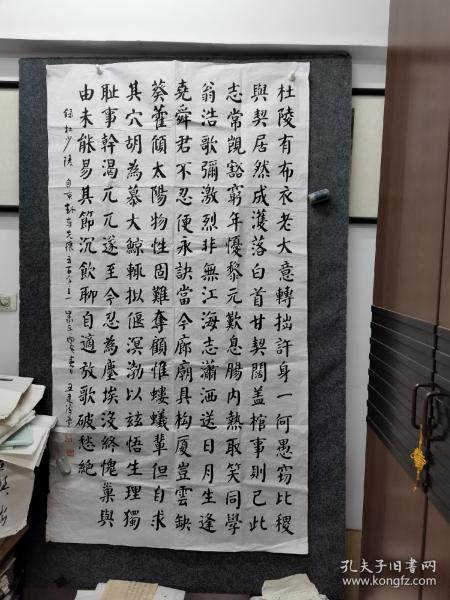 杜陵有布衣老大意轉拙許身一何愚窃比稷
與契居然成濩落白首甘契闊盖棺事則已此
志常覬豁窮年憂黎元歎息腸内熱取笑同學
翁浩歌彌激烈非無江海志瀟洒送日月生逢
堯舜君不忍便永訣當今廊廟具构厦豈雲缺
葵藿傾太陽物性固難奪顧惟螻蟻輩但自求
其穴胡為慕大鯨輒拟偃溟渤以玆悟生理獨
耻事幹渴兀兀遂至今忍為塵埃沒終愧巢與
由未能易其節沉飲聊自適放歌破愁絶
錄杜少陵自京赴奉先詠五百字之一
孔夫子旧书网
www.kongfz.com